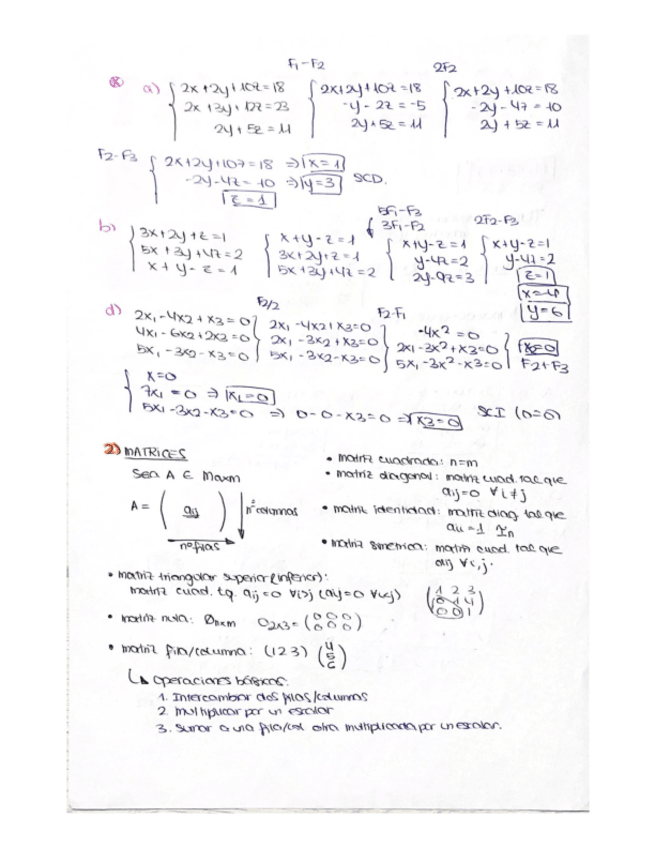 F₁-F₂ 2F2
⊗ a) { 2x+2y+10z=18 { 2x+2y+10z=18 { 2x+2y+10z=18
2x+3y+12z=23 -y-2z=-5 -2y-4z=-10
2y+5z=11 2y+5z=11 2y+5z=11
F2-F3 { 2x+2y+10z=18 ⇒ x=1
-2y-4z=-10 ⇒ y=3 SCD.
z=1
5F₁-F3
b) 3F₁-F2 2F2-F3
{ 3x+2y+z=1 { x+y-z=1 { x+y-z=1 { x+y-z=1
5x+3y+4z=2 3x+2y+z=1 y-4z=2 y-4z=2
x+y-z=1 5x+3y+4z=2 2y-9z=3 z=1
x=-4
y=6
d) F2/2 F2-F₁
2x₁-4x2+x3=0 } 2x₁-4x2+x3=0 } -4x²=0 }
4x₁-6x2+2x3=0 2x₁-3x2+x3=0 2x₁-3x²+x3=0 x2=0
5x₁-3x2-x3=0 5x₁-3x2-x3=0 5x₁-3x²-x3=0 F2+F3
{ x=0
7x₁=0 ⇒ x₁=0
5x₁-3x2-x3=0 ⇒ 0-0-x3=0 ⇒ x3=0 SCI (0=0)
2) MATRICES
Sea A ∈ Mnxm
A = ( aij ) nº columnas
nº filas
• matriz cuadrada: n=m
• matriz diagonal: matriz cuad. tal que
aij=0 ∀i≠j
• matriz identidad: matriz diag tal que
aii=1 In
• matriz simetrica: matriz cuad. tal que
aij ∀i,j.
• matriz triangular superior (inferior):
matriz cuad. tq. aij=0 ∀i>j (aij=0 ∀i<j) (1 2 3
0 1 4
0 0 1)
• matriz nula: 0nxm 02x3 = (0 0 0
0 0 0)
• matriz fila/columna: (1 2 3) (4
5
2)
↳ operaciones básicas:
1. Intercambiar dos filas/columnas
2. multiplicar por un escalar
3. sumar a una fila/col otra multiplicada por un escalar.